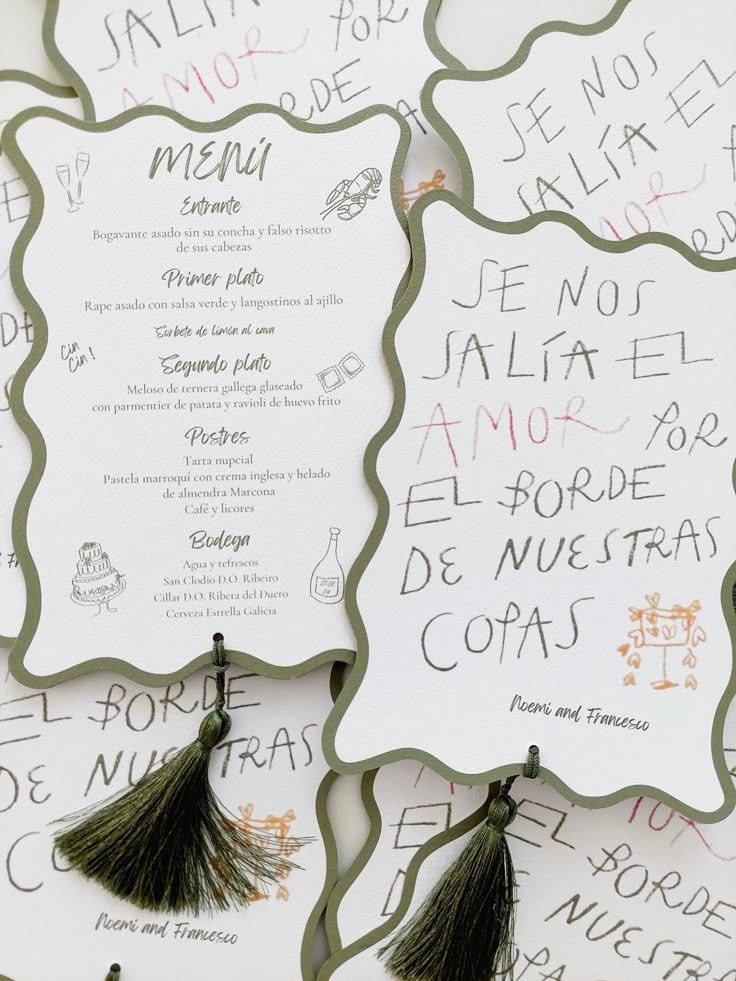 MENÚ
Entrante
Bogavante asado sin su concha y falso risotto
de sus cabezas
Primer plato
Rape asado con salsa verde y langostinos al ajillo
Sorbete de limón al cava
Cin
Cin!
Segundo plato
Meloso de ternera gallega glaseado
con parmentier de patata y ravioli de huevo frito
Postres
Tarta nupcial
Pastela marroquí con crema inglesa y helado
de almendra Marcona
Café y licores
Bodega
Agua y refrescos
San Clodio D.O. Ribeiro
Cillar D.O. Ribera del Duero
Cerveza Estrella Galicia
SE NOS
SALÍA EL
AMOR POR
EL BORDE
DE NUESTRAS
COPAS
Noemi and Francesco
SALÍA
AMOR POR
BORDE
SE NOS
SALÍA EL
AMOR
BORDE
EL BORDE
DE NUESTRAS
Noemi and Francesco
EL BORDE
DE NUESTRAS